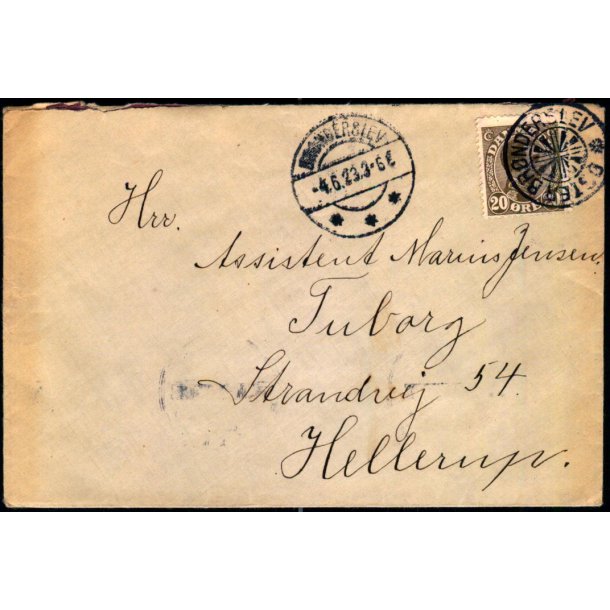 BRØNDERSLEV
-4.6.23.3-6E
* * *
DAN
20 ØRE
ØSTER BRØNDERSLEV *
Hrr.
Assistent Marius Jensen.
Tuborg
Strandvej 54.
Hellerup.